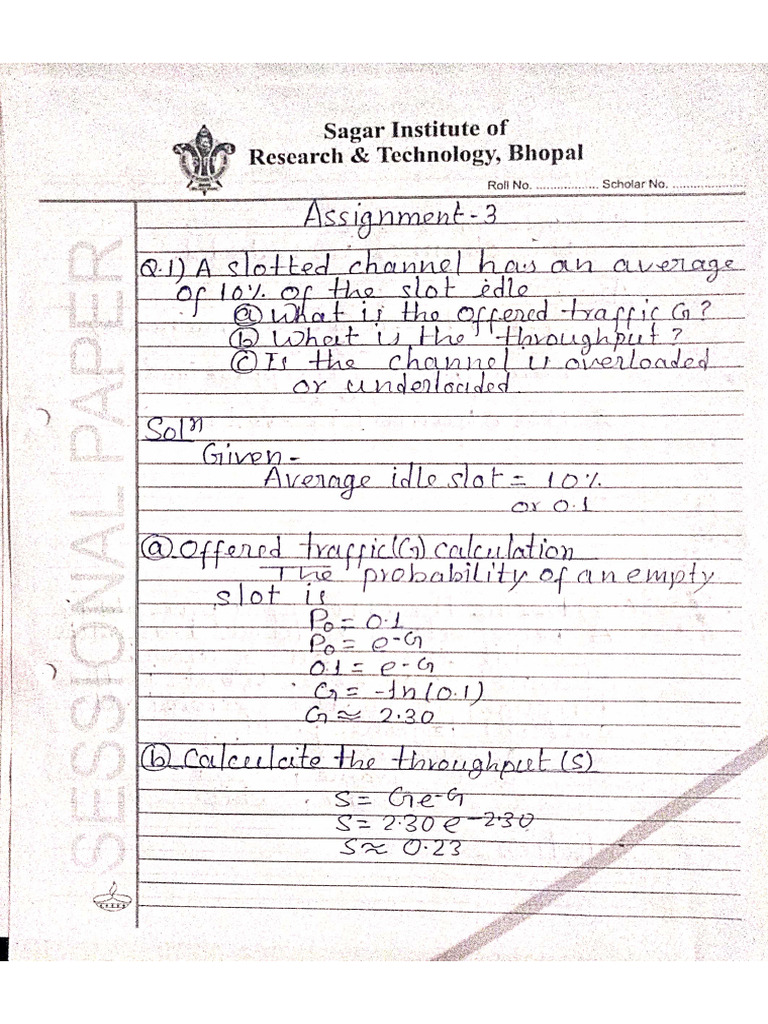 Sagar Institute of
Research & Technology, Bhopal
Roll No. .................. Scholar No. .....................
SESSIONAL PAPER
Assignment-3
Q.1) A slotted channel has an average
of 10% of the slot idle
(a) What is the offered traffic G?
(b) What is the throughput?
(c) Is the channel is overloaded
or underloaded
Solⁿ
Given -
Average idle slot = 10%
or 0.1
(a) Offered traffic(G) calculation
The probability of an empty
slot is
P₀ = 0.1
P₀ = e-G
0.1 = e-G
G = -ln(0.1)
G ≈ 2.30
(b) Calculate the throughput (S)
S = Ge-G
S = 2.30 e-2.30
S ≈ 0.23